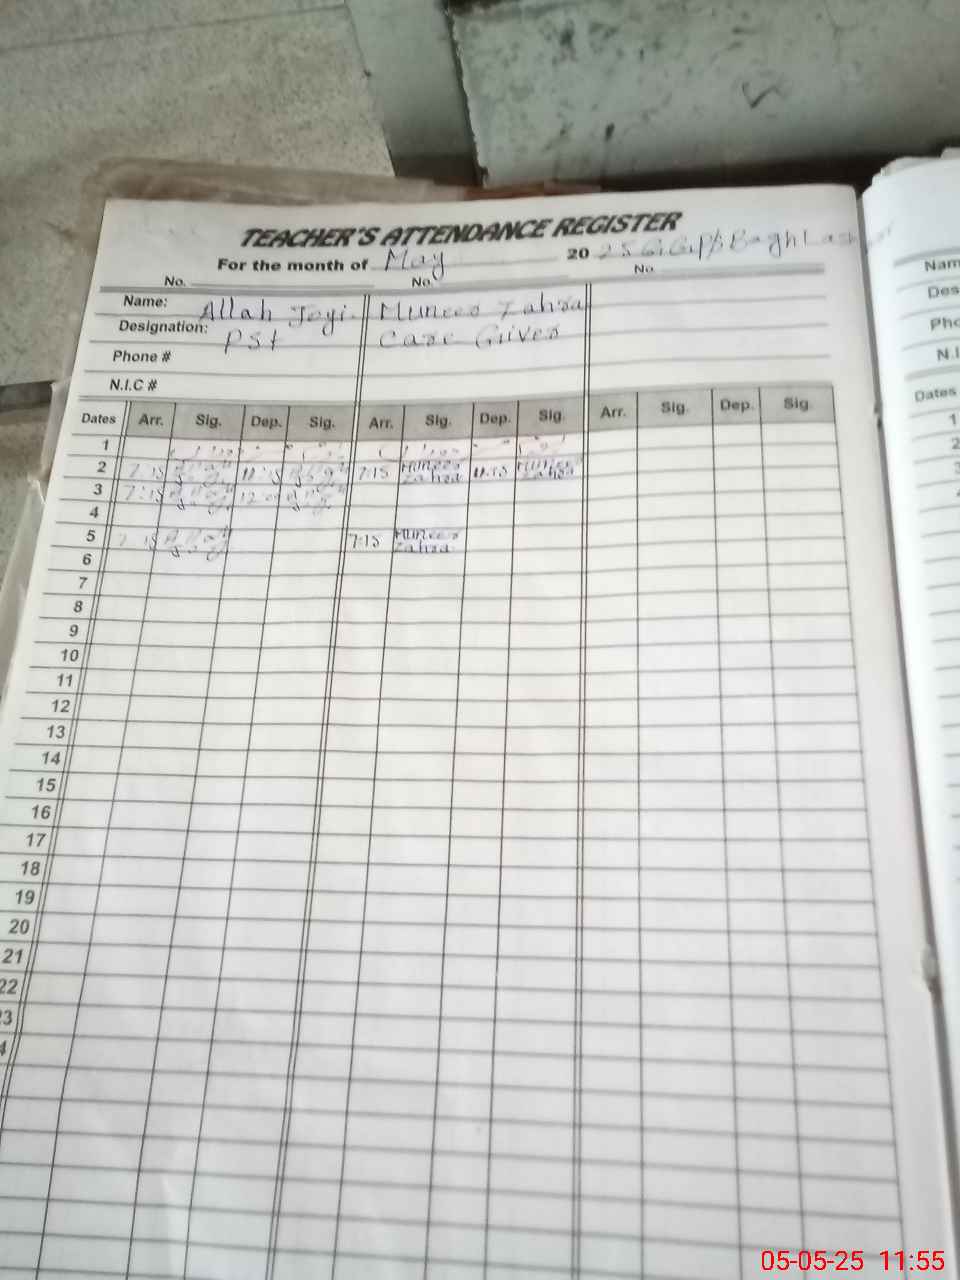 TEACHER'S ATTENDANCE REGISTER
For the month of May 20 25 G.G.P/S Bagh
No. No. No.
Name: Allah Joyi Munees Zahra
Designation: PST Care Giver
Phone #
N.I.C #
Dates Arr. Sig. Dep. Sig. Arr. Sig. Dep. Sig. Arr. Sig. Dep. Sig.
1
2 7:15 11:15 7:15 Munees Zahra 11:15 Munees Zahra
3 7:15 12:00
4
5 7:15 7:15 Munees Zahra
6
7
8
9
10
11
12
13
14
15
16
17
18
19
20
21
22
23
4
Nam
Des
Pho
N.I
Dates
1
2
3
05-05-25 11:55